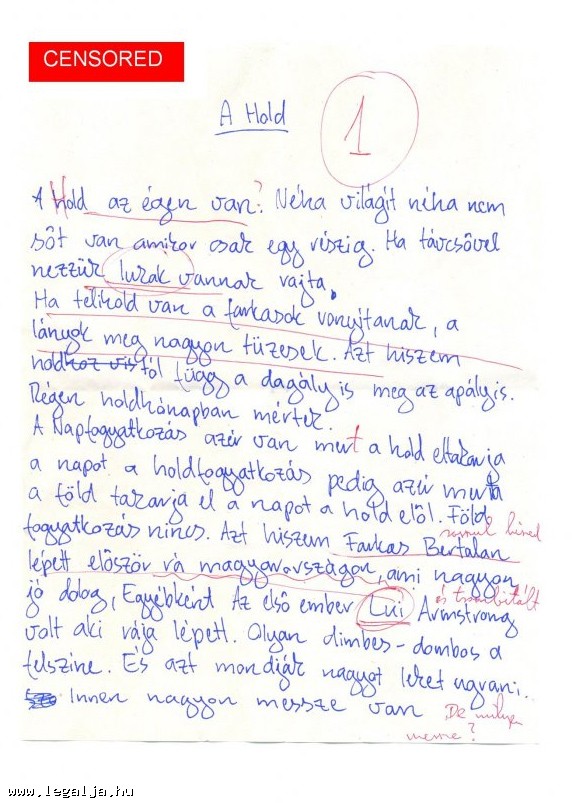 CENSORED
A Hold
1
A Hold az égen van? Néha világít néha nem
sőt van amikor csak egy részig. Ha távcsővel
nezzük lukak vannak rajta.
Ha telihold van a farkasok vonyitanak, a
lányok meg nagyon tüzesek. Azt hiszem
hold tól függ a dagály is meg az apály is.
Régen holdhónapban mértek.
A Napfogyatkozás azér van mert a hold eltakarja
a napot a holdfogyatkozás pedig azér mert
a föld takarja el a napot a hold elől. Föld
fogyatkozás nincs. Azt hiszem Farkas Bertalan
lépett először rá magyarországon, ami nagyon
jó dolog, Egyébként Az első ember Lui Armstrong
és trombitált
volt aki rája lépett. Olyan dimbes-dombos a
felszíne. És azt mondják nagyot lehet ugrani.
Innen nagyon messze van
De milyen
messze?
www.legalja.hu